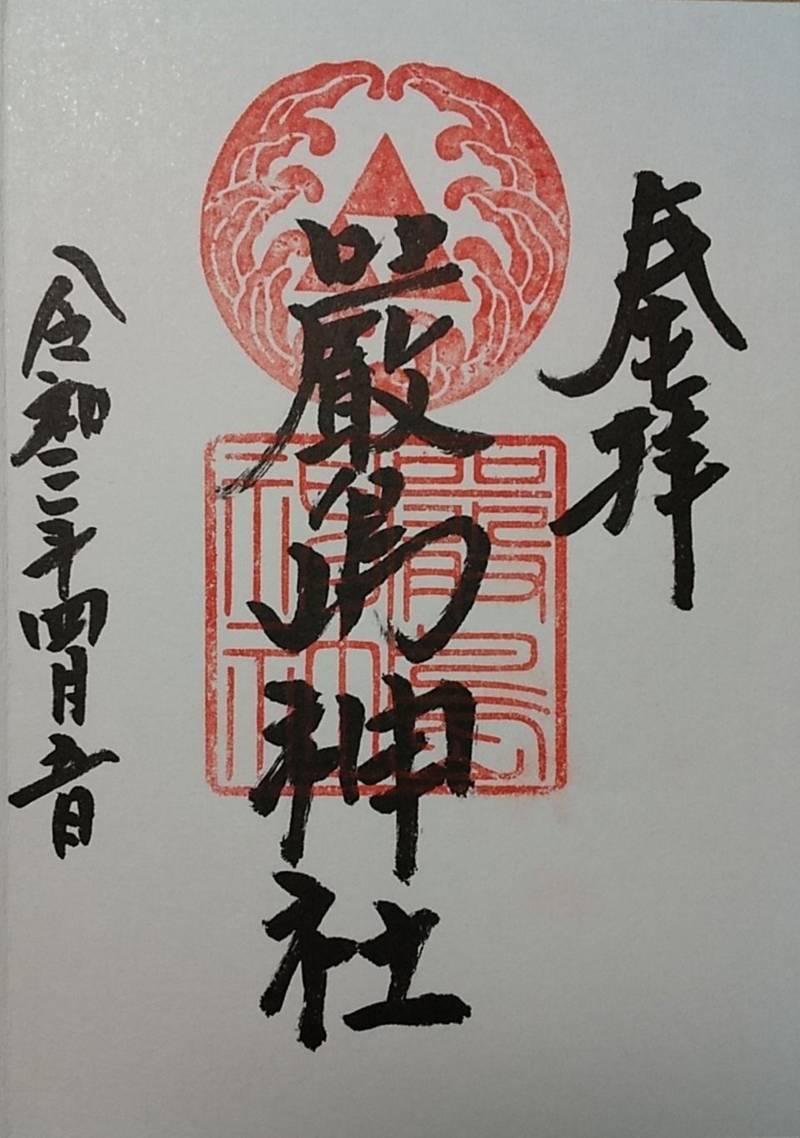 奉拝
嚴島神社
令和三年四月五日
嚴島
神社